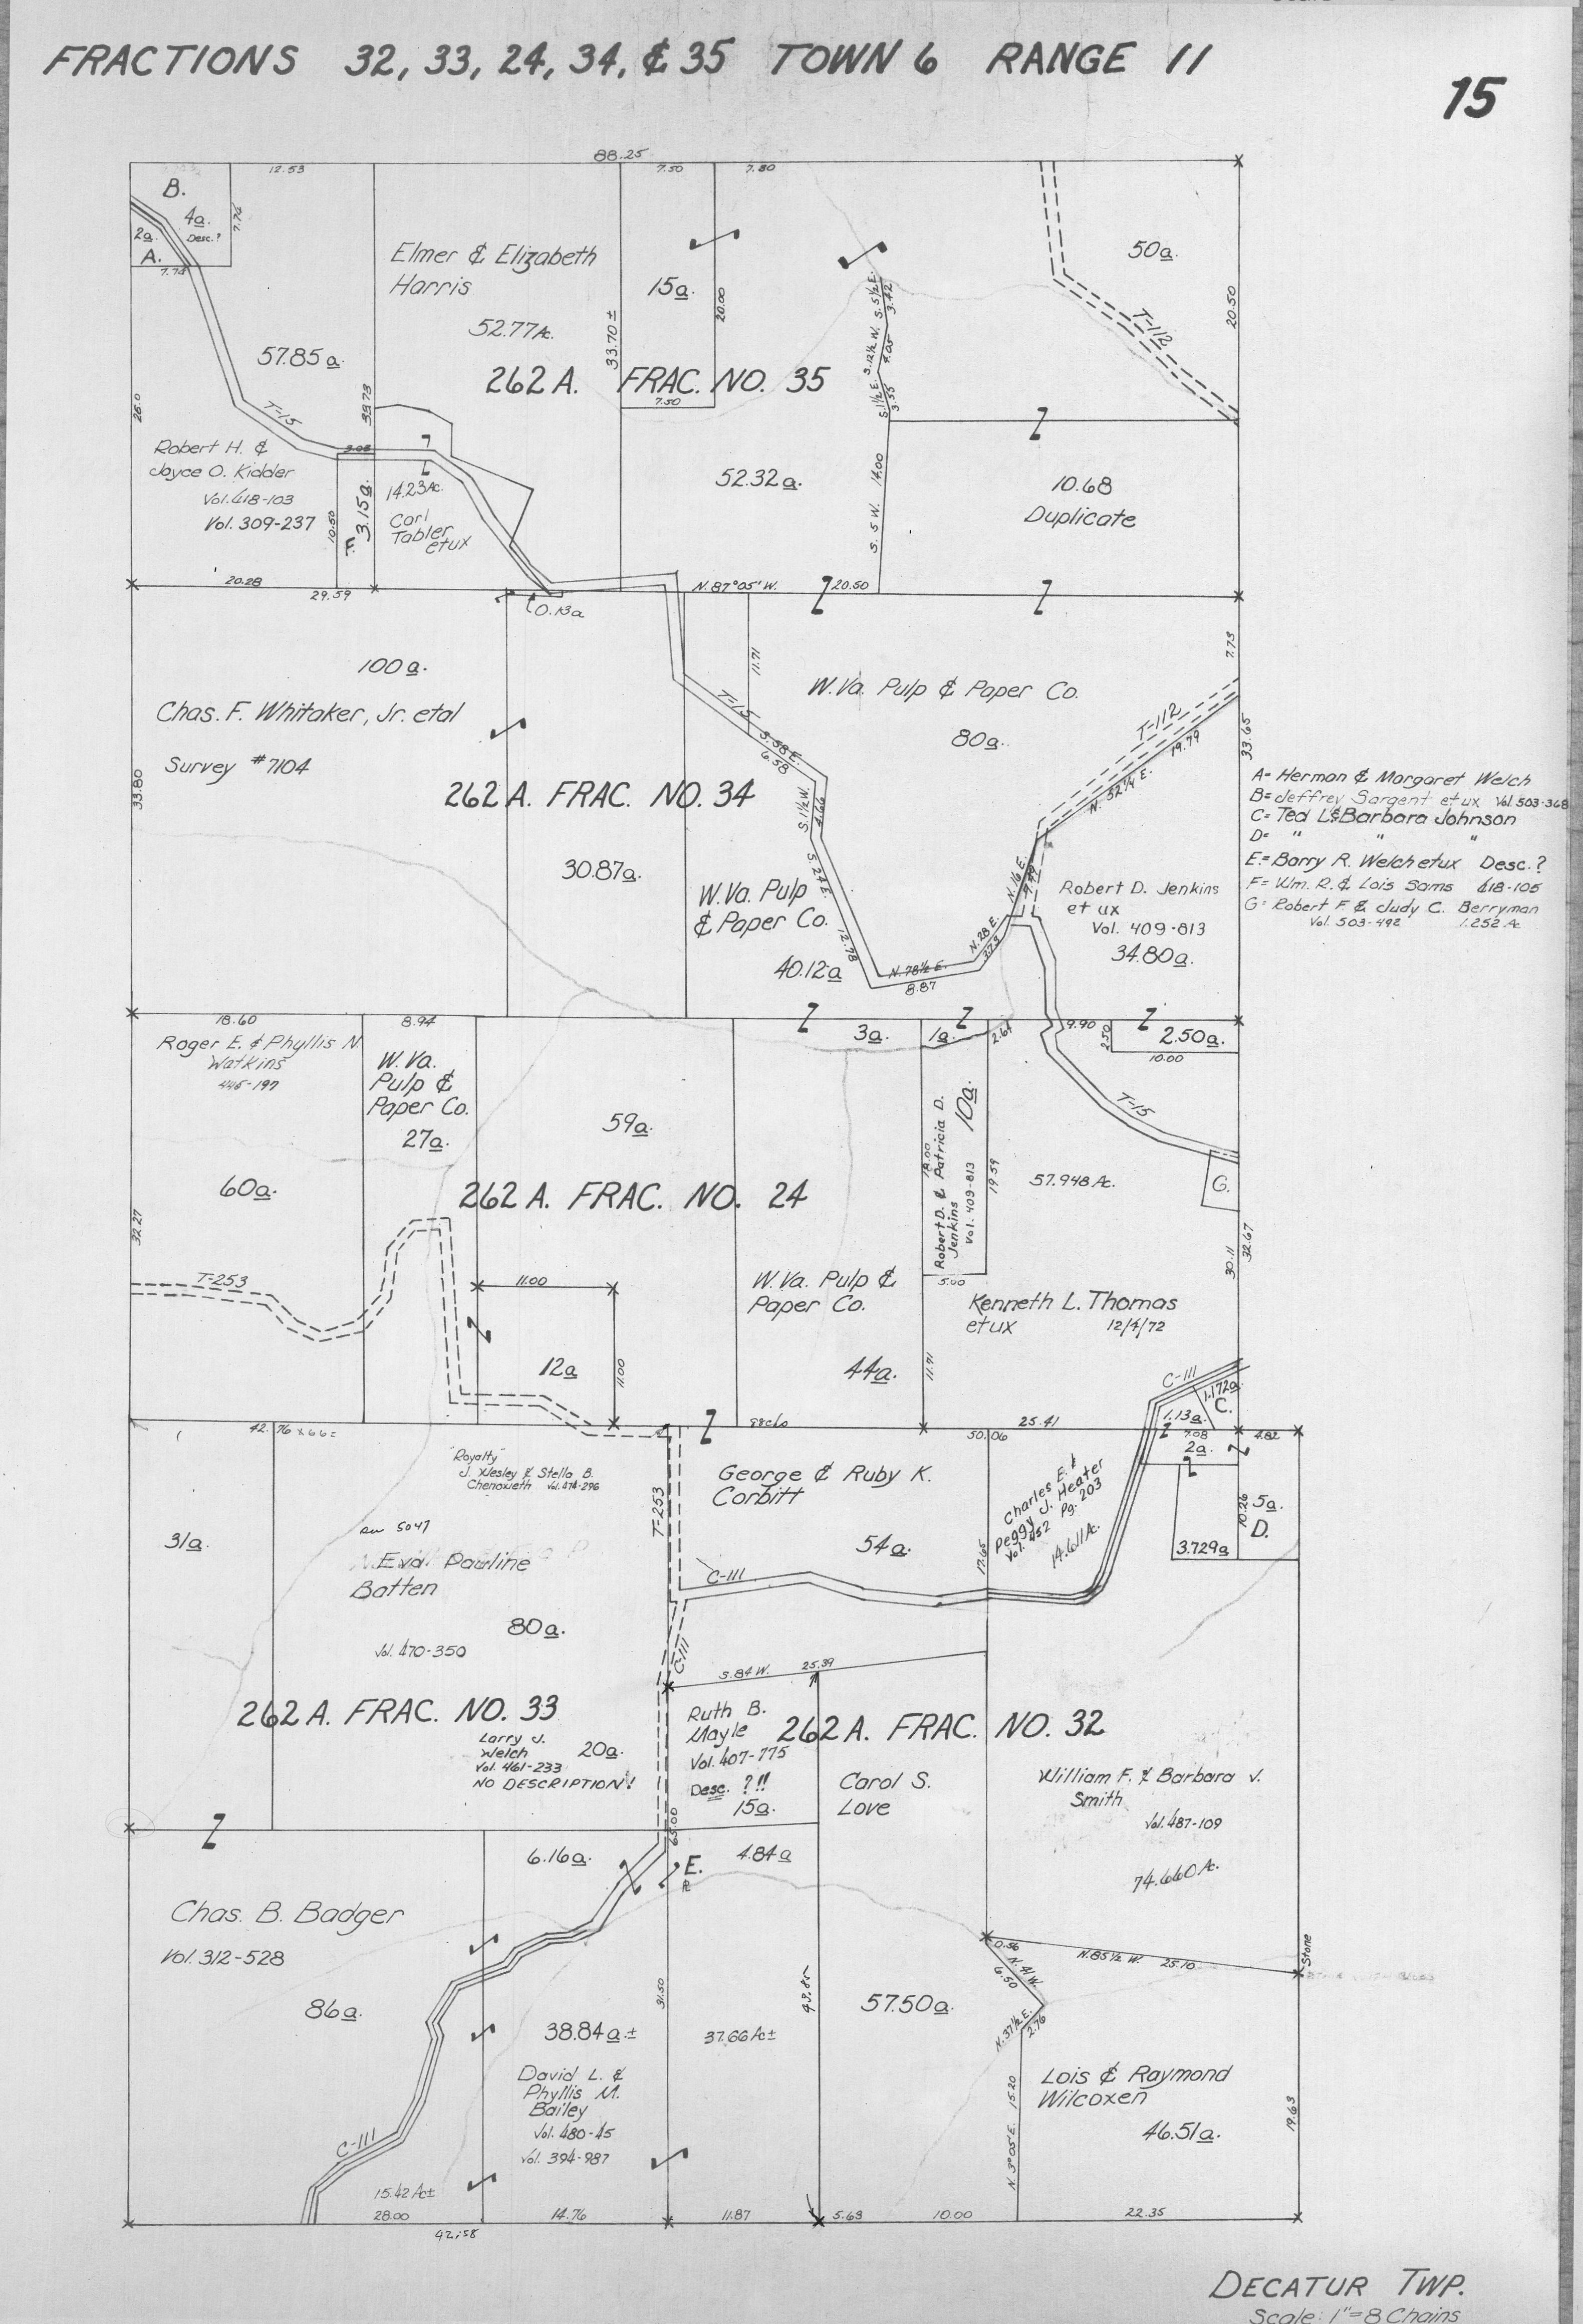 FRACTIONS 32, 33, 24, 34, & 35 TOWN 6 RANGE 11
15
88.25
12.53
7.50
7.80
B.
4a.
Desc.?
7.74
2a.
A.
7.74
Elmer & Elizabeth
Harris
52.77 Ac.
15a.
20.00
50a.
20.50
T-112
57.85a.
33.70 ±
262 A. FRAC. NO. 35
7.50
S. 5½ E.
3.42
S. 12½ W.
7.05
S. 1½ E.
3.55
26.0
33.73
T-15
3.03
Robert H. &
Joyce O. Kidder
Vol. 418-103
Vol. 309-237
10.50
F.
3.15a.
14.23 Ac.
Carl
Tabler
etux
52.32a.
S. 5 W. 14.00
10.68
Duplicate
20.28
29.59
0.13a
N. 87°05' W.
20.50
100a.
Chas. F. Whitaker, Jr. etal
Survey #7104
11.71
7.73
W.Va. Pulp & Paper Co.
80a.
T-15
S. 58 E.
6.58
T-112
19.79
N. 52¼ E.
33.65
33.80
262 A. FRAC. NO. 34
S. 1½ W.
4.66
A= Herman & Margaret Welch
B= Jeffrey Sargent etux Vol 503-368
C= Ted L & Barbara Johnson
D= " " "
E= Barry R. Welch etux Desc.?
F= Wm. R. & Lois Sams 418-105
G= Robert F. & Judy C. Berryman
Vol. 503-492 1.252 Ac
30.87a.
W.Va. Pulp
& Paper Co.
40.12a
S. 24 E.
12.78
N. 78½ E.
8.87
N. 28 E.
3.73
N. 16 E.
Robert D. Jenkins
et ux
Vol. 409-813
34.80a.
18.60
8.94
Roger E. & Phyllis N
Watkins
445-197
W. Va.
Pulp &
Paper Co.
27a.
3a.
1a.
2.61
9.90
2.50
2.50a.
10.00
59a.
Robert D. & Patricia D.
Jenkins
Vol. 409-813
10a.
18.00
19.59
T-15
57.948 Ac.
G.
60a.
262 A. FRAC. NO. 24
32.27
30.11
32.67
T-253
11.00
5.00
12a
11.00
W. Va. Pulp &
Paper Co.
44a.
Kenneth L. Thomas
etux 12/4/72
11.71
C-111
1.172a.
C.
1.13a.
42.76 x 66=
25.41
7.08
4.82
50.06
2a.
"Royalty"
J. Wesley & Stella B.
Chenoweth Vol. 474-296
T-253
George & Ruby K.
Corbitt
54a.
Charles E. &
Peggy J. Heater
Vol. 452 Pg. 203
14.611 Ac.
17.65
10.26
5a.
D.
3.729a
31a.
5047
Eva Pauline
Batten
80a.
Vol. 470-350
C-111
C-111
S. 84 W. 25.39
262 A. FRAC. NO. 33
Larry J.
Welch
Vol. 461-233
NO DESCRIPTION!
20a.
Ruth B.
Mayle
Vol. 407-775
Desc. ?!!
15a.
262 A. FRAC. NO. 32
Carol S.
Love
William F. & Barbara J.
Smith
Vol. 487-109
74.660 Ac.
65.00
6.16a.
E.
4.84a
Chas. B. Badger
Vol. 312-528
86a.
0.56
N. 41 W.
6.50
N. 85½ W. 25.10
Stone
31.50
43.85
57.50a.
N. 37½ E.
2.76
38.84a. ±
37.66 Ac ±
David L. &
Phyllis M.
Bailey
Vol. 480-45
Vol. 394-987
Lois & Raymond
Wilcoxen
46.51a.
N. 3°05' E. 15.20
19.63
C-111
15.42 Ac±
28.00
14.76
11.87
5.63
10.00
22.35
42.58
DECATUR TWP.
Scale: 1"=8 Chains